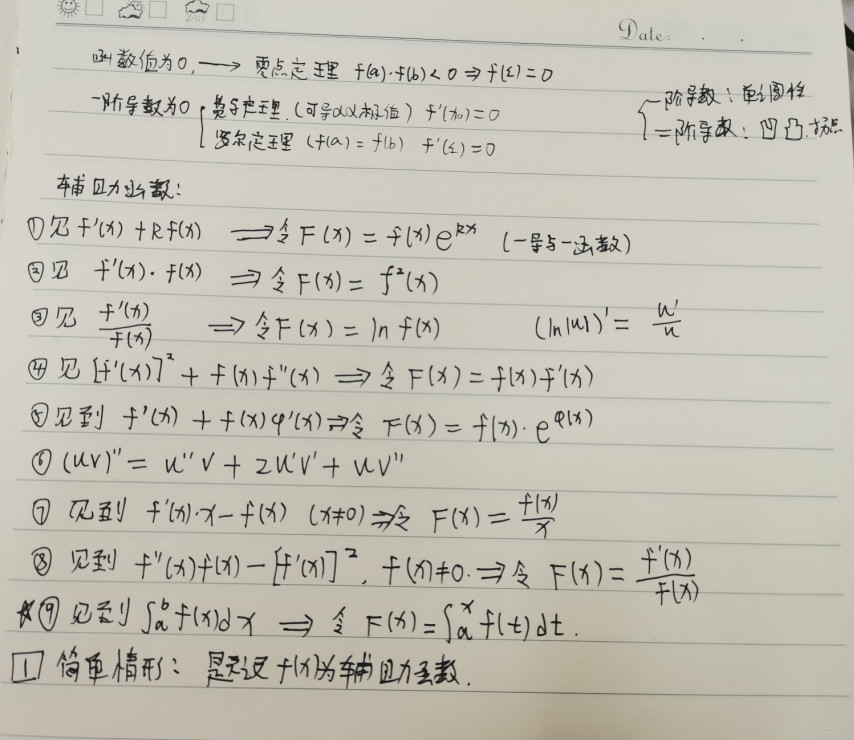 Date: . .
函数值为0, ⟶ 零点定理 f(a)·f(b)<0 ⇒ f(ξ)=0
一阶导数为0 { 费马定理 (可导 极值) f'(x₀)=0
罗尔定理 (f(a)=f(b) f'(ξ)=0
{ 一阶导数: 单调性
二阶导数: 凹凸.拐点
辅助函数:
①见 f'(x)+kf(x) ⟹ 令 F(x)=f(x)e^{kx} (一导与一函数)
②见 f'(x)·f(x) ⟹ 令 F(x)=f²(x)
③见 f'(x)/f(x) ⟹ 令 F(x)=ln f(x) (ln|u|)'=u'/u
④见 [f'(x)]²+f(x)f''(x) ⟹ 令 F(x)=f(x)f'(x)
⑤见到 f'(x)+f(x)φ'(x) ⇒ 令 F(x)=f(x)·e^{φ(x)}
⑥ (uv)''=u''v+2u'v'+uv''
⑦ 见到 f'(x)·x-f(x) (x≠0) ⇒ 令 F(x)=f(x)/x
⑧ 见到 f''(x)f(x)-[f'(x)]², f(x)≠0. ⟹ 令 F(x)=f'(x)/f(x)
☆⑨ 见到 ∫ₐᵇ f(x)dx ⟹ 令 F(x)=∫ₐˣ f(t)dt.
[1] 简单情形: 题设 f(x)为辅助函数.